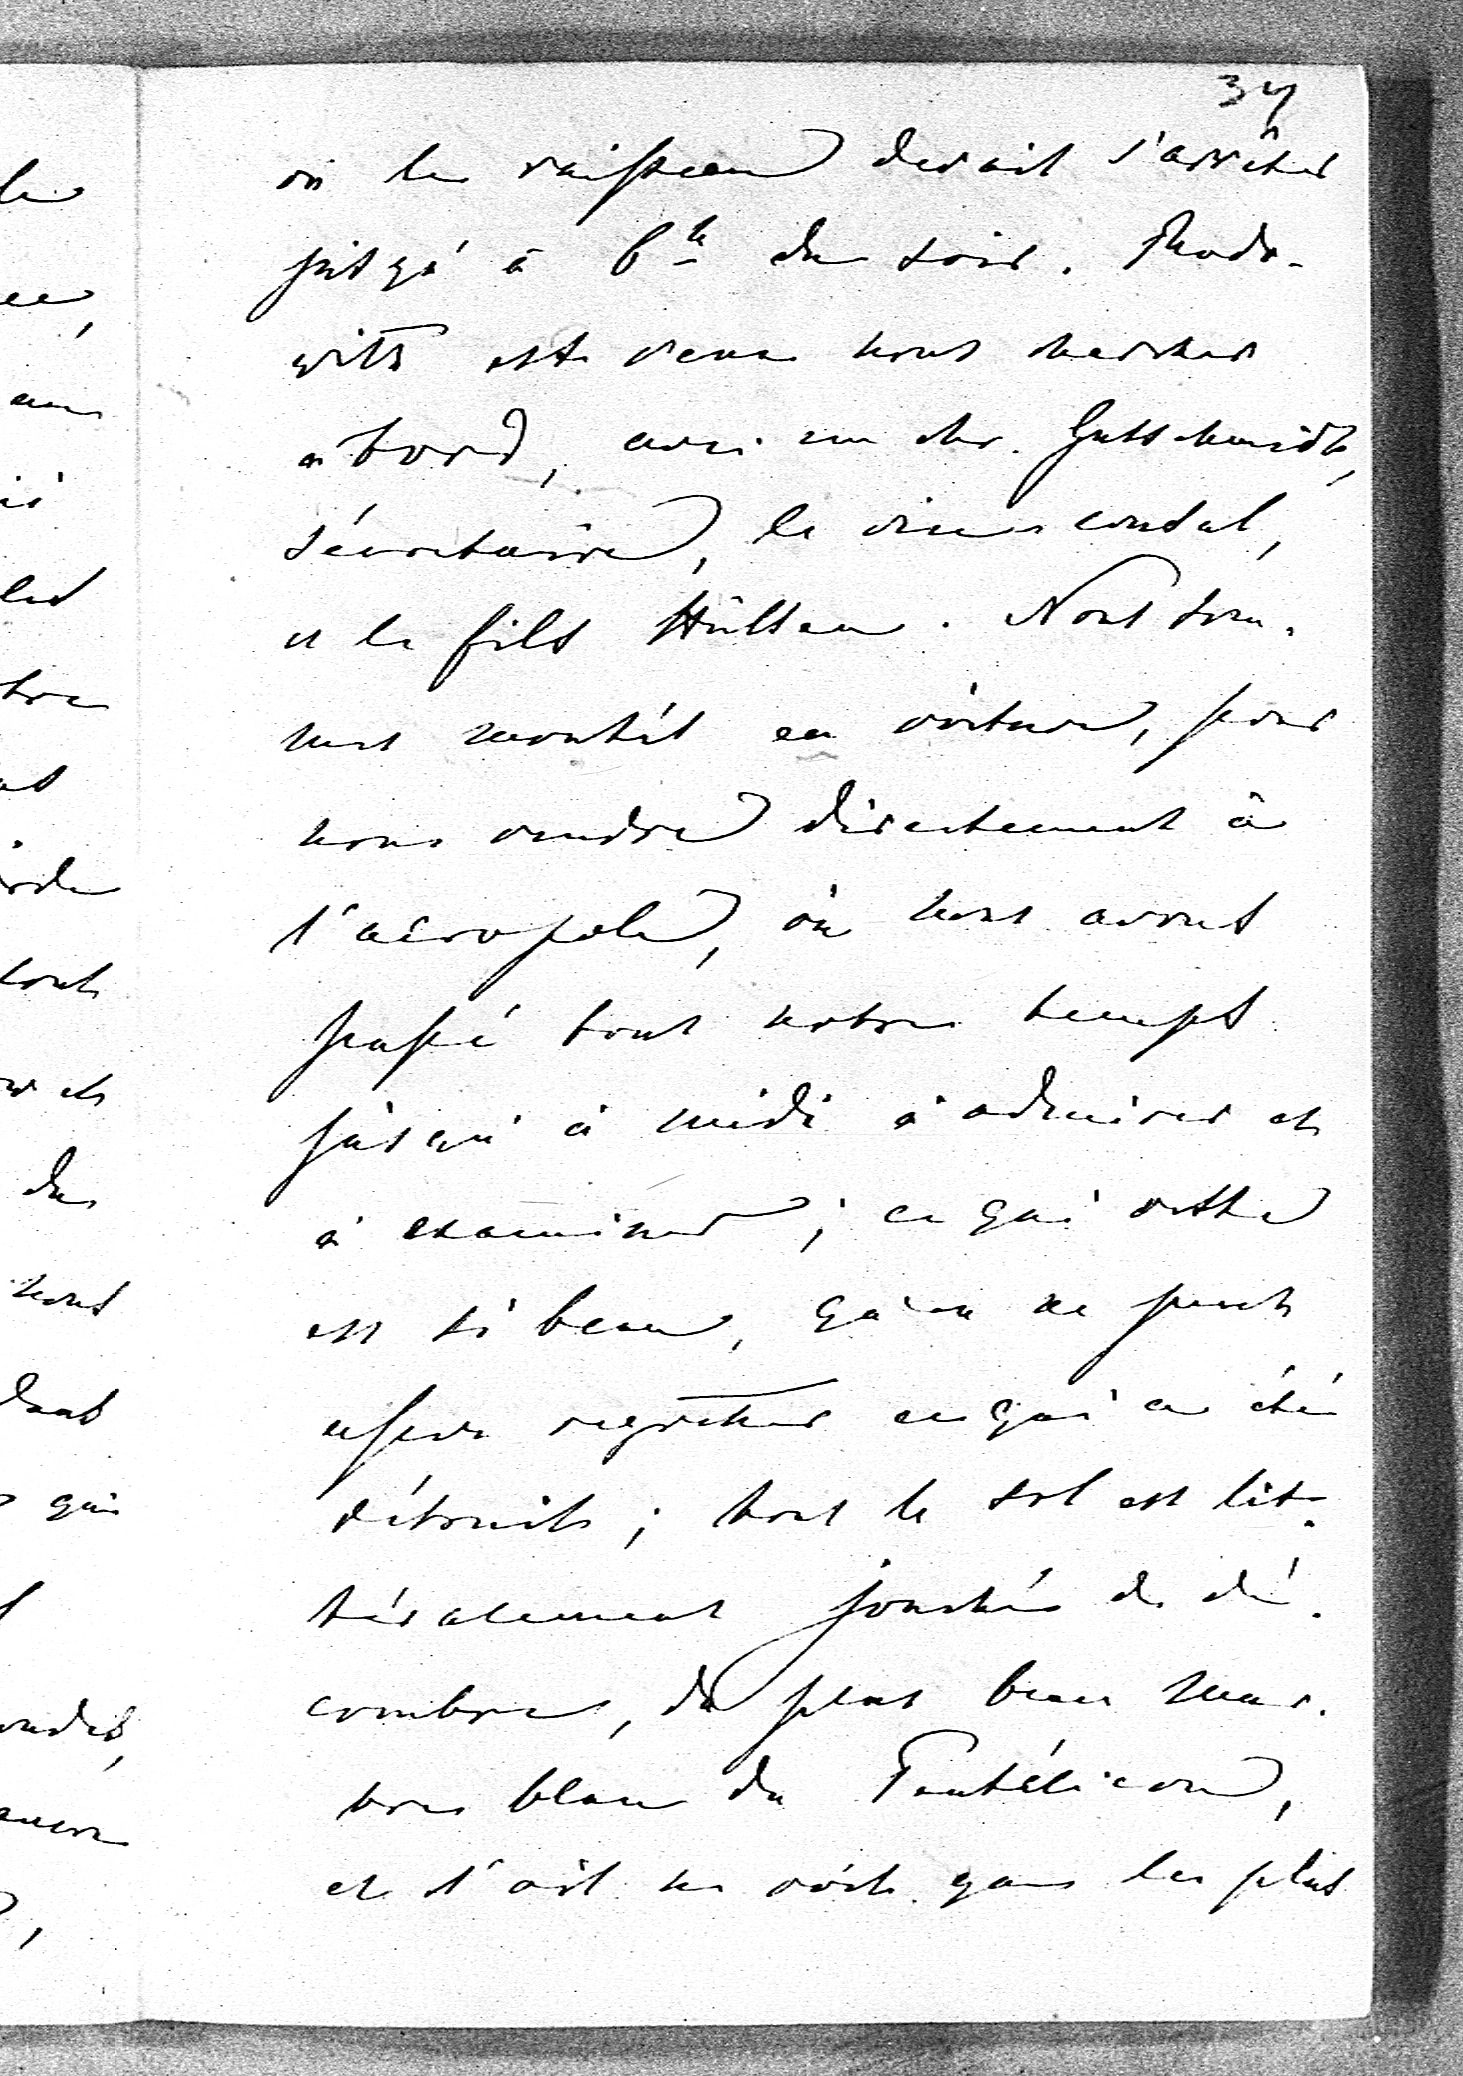 37
où le vaisseau devait s'arrêter
jusqu'à 6h du soir. Rado-
witz est venu nous chercher
à bord, avec un Mr. Gutschmidt,
sécretaire, le vice consul,
et le fils Hülsen. Nous som-
mes montés en voiture, pour
nous rendre directement à
l'acropole, où nous avons
passé tout notre temps
jusqu'à midi à admirer et
à examiner; ce qui reste
est si beau, qu'on ne peut
assez regretter ce qui a été
détruit; tout le sol est lit-
téralement jonché de dé-
combres, du plus beau mar-
bre blanc du Pentélicon,
et l'œil ne voit que les plus
le
ée,
les
tre
tout
du
nous
dans
qui